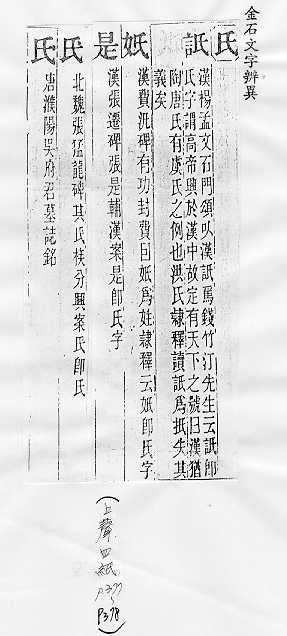 金石文字辨異
氏
䟡 漢楊孟文石門頌以漢䟡焉錢竹汀先生云䟡即
氏字謂高帝興於漢中故定有天下之號曰漢猶
陶唐氏有虞氏之例也洪氏隸釋讀䟡為抵失其
義矣
妣 漢費汎碑有功封費因妣為姓隸釋云妣即氏字
是 漢張遷碑張是輔漢案是即氏字
氏 北魏張猛龍碑其氏枝分興案氏即氏
氏 唐濮陽吳府君墓誌銘
(上聲四紙
P377
P378)